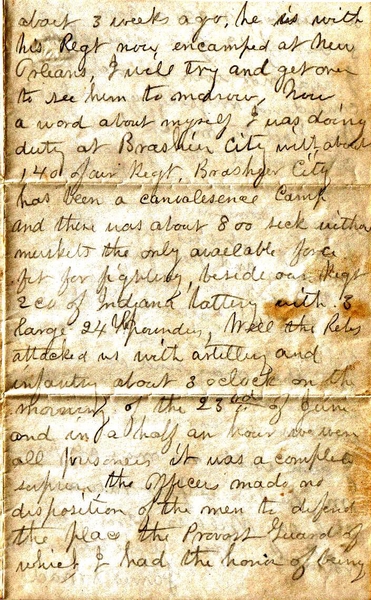 about 3 weeks ago, he is with
his Regt now encamped at New
Orleans, I will try and get over
to see him to morrow, Now
a word about myself I was doing
duty at Brashier City with about
140 of our Regt, Brashier City
has been a convalesence Camp
and there was about 800 sick with
muskets the only available force
fit for fighting, beside our Regt
2 co of Indiana battery with 3
large 24 pounders, Well the Rebs
attacked us with artillery and
infantry about 3 oclock on the
morning of the 23 of June
and in a half an hour we were
all prisoners it was a complete
suprise the officers made no
disposition of the men to defend
the place the Provost Guard of
which I had the honor of being